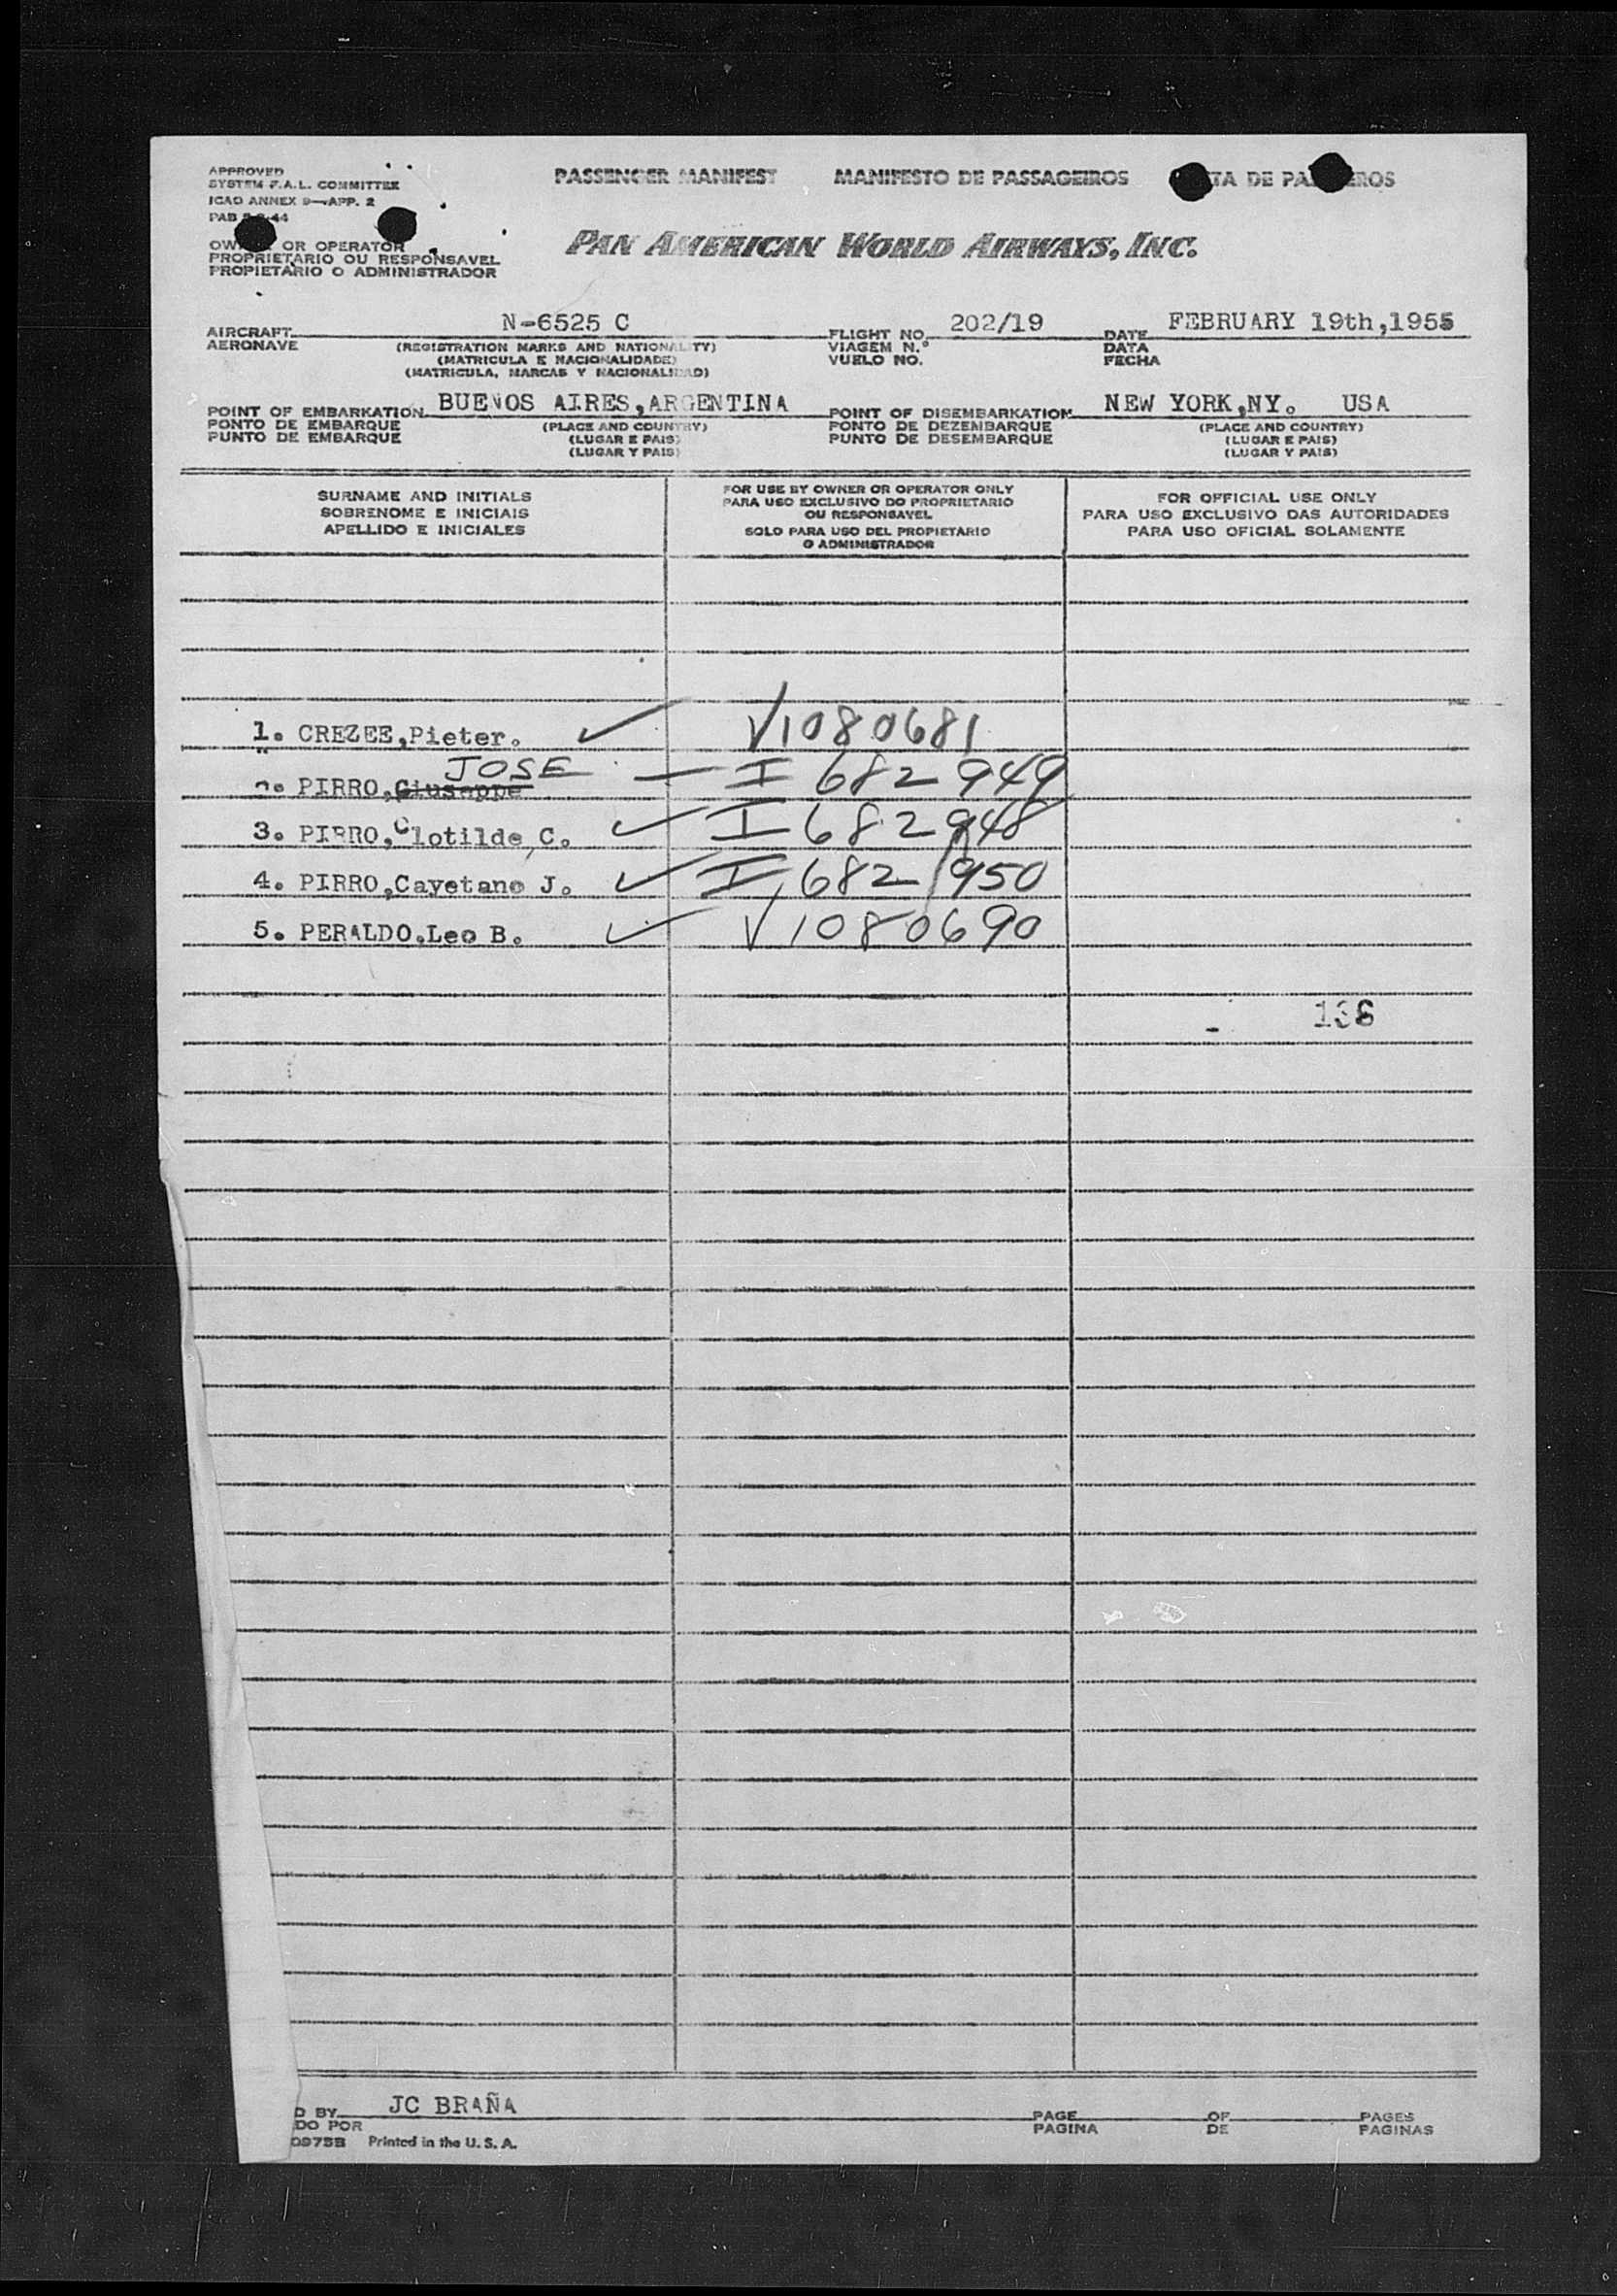 APPROVED
SYSTEM F.A.L. COMMITTEE
ICAO ANNEX 9—APP. 2
PAB 44
PASSENGER MANIFEST MANIFESTO DE PASSAGEIROS DE
OR OPERATOR
PROPRIETARIO OU RESPONSAVEL
PROPIETARIO O ADMINISTRADOR
PAN AMERICAN WORLD AIRWAYS, INC.
AIRCRAFT N-6525 C FLIGHT NO. 202/19 DATE FEBRUARY 19th,1955
AERONAVE (REGISTRATION MARKS AND NATIONALITY) VIAGEM N.º DATA
(MATRICULA E NACIONALIDADE) VUELO NO. FECHA
(MATRICULA, MARCAS Y NACIONALIDAD)
POINT OF EMBARKATION BUENOS AIRES,ARGENTINA POINT OF DISEMBARKATION NEW YORK,NY. USA
PONTO DE EMBARQUE (PLACE AND COUNTRY) PONTO DE DEZEMBARQUE (PLACE AND COUNTRY)
PUNTO DE EMBARQUE (LUGAR E PAIS) PUNTO DE DESEMBARQUE (LUGAR E PAIS)
(LUGAR Y PAIS) (LUGAR Y PAIS)
SURNAME AND INITIALS
SOBRENOME E INICIAIS
APELLIDO E INICIALES
FOR USE BY OWNER OR OPERATOR ONLY
PARA USO EXCLUSIVO DO PROPRIETARIO
OU RESPONSAVEL
SOLO PARA USO DEL PROPIETARIO
O ADMINISTRADOR
FOR OFFICIAL USE ONLY
PARA USO EXCLUSIVO DAS AUTORIDADES
PARA USO OFICIAL SOLAMENTE
1. CREZEE,Pieter. ✓ V1080681
JOSE
PIRRO,Giuseppe — I 682 949
3. PIRRO,Clotilde C. ✓ I 682948
4. PIRRO,Cayetano J. ✓ I 682 950
5. PERALDO,Leo B. ✓ V1080690
-
JC BRAÑA
BY PAGE OF PAGES
DO POR PAGINA DE PAGINAS
0975B Printed in the U.S.A.